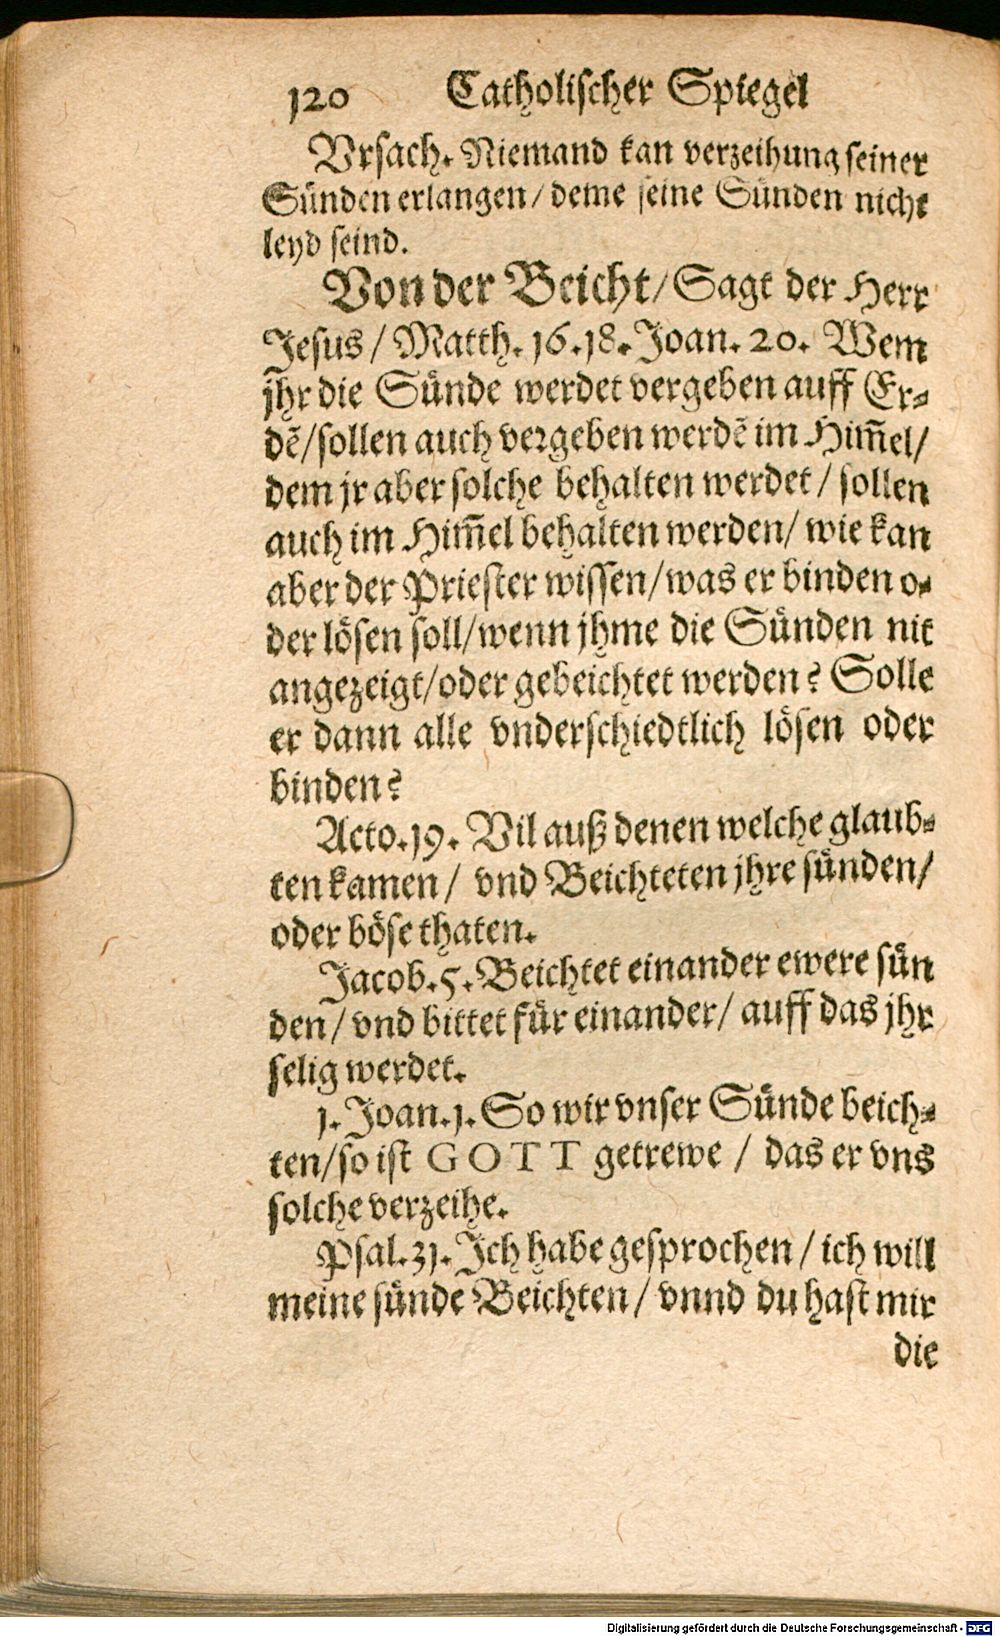 120 Catholischer Spiegel
Vrsach. Niemand kan verzeihung seiner
Sünden erlangen/ deme seine Sünden nicht
leyd seind.
Von der Beicht/ Sagt der Herr
Jesus / Matth. 16.18. Joan. 20. Wem
jhr die Sünde werdet vergeben auff Er-
dẽ/sollen auch vergeben werdẽ im Him̃el/
dem jr aber solche behalten werdet / sollen
auch im Him̃el behalten werden/ wie kan
aber der Priester wissen/was er binden o-
der lösen soll/wenn jhme die Sünden nit
angezeigt/oder gebeichtet werden? Solle
er dann alle vnderschiedtlich lösen oder
binden?
Acto.19. Vil auß denen welche glaub-
ten kamen/ vnd Beichteten jhre sünden/
oder böse thaten.
Jacob.5. Beichtet einander ewere sün
den/ vnd bittet für einander/ auff das jhr
selig werdet.
1. Joan.1. So wir vnser Sünde beich-
ten/so ist GOTT getrewe / das er vns
solche verzeihe.
Psal.31. Ich habe gesprochen / ich will
meine sünde Beichten/ vnnd du hast mir
die
Digitalisierung gefördert durch die Deutsche Forschungsgemeinschaft - DFG